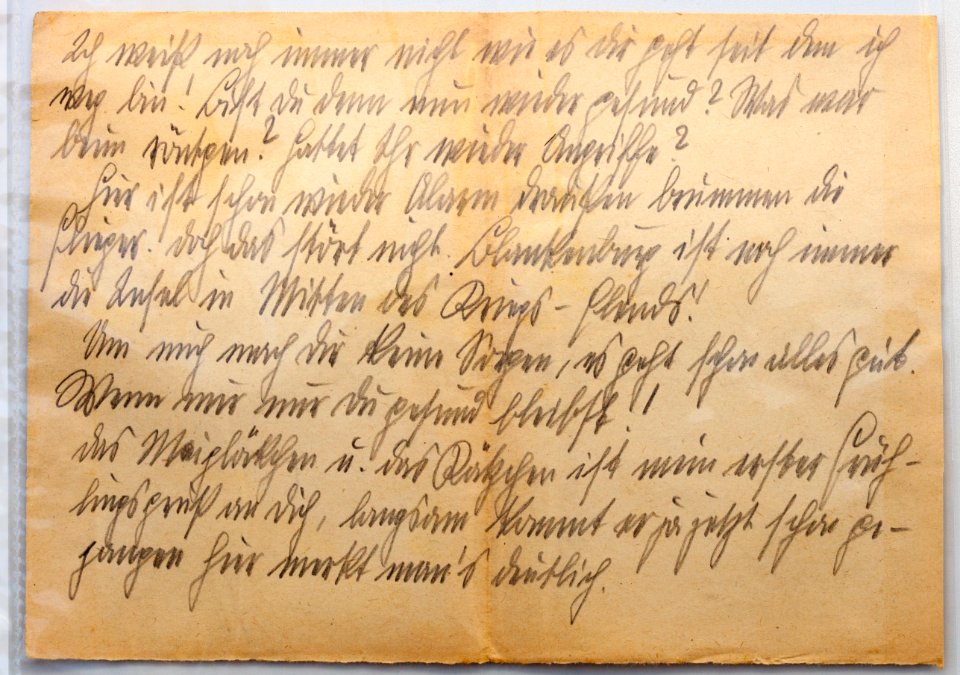 Ich weiß noch immer nicht wie es dir geht seit dem ich
weg bin! Bist du denn nun wieder gesund? Was war
beim röntgen? Hattet Ihr wieder Angriffe?
Hier ist schon wieder Alarm draußen brummen die
Flieger. doch das stört nicht. Blankenburg ist noch immer
die Insel in Mitten des Kriegs-Elends!
Um mich mach dir keine Sorgen, es geht schon alles gut.
Wenn mir nur du gesund bleibst!!
das Maiglökchen u. das Kätzchen ist mein erster Früh-
lingsgruß an dich, langsam kommt er ja jetzt schon ge-
gangen hier merkt man's deutlich.